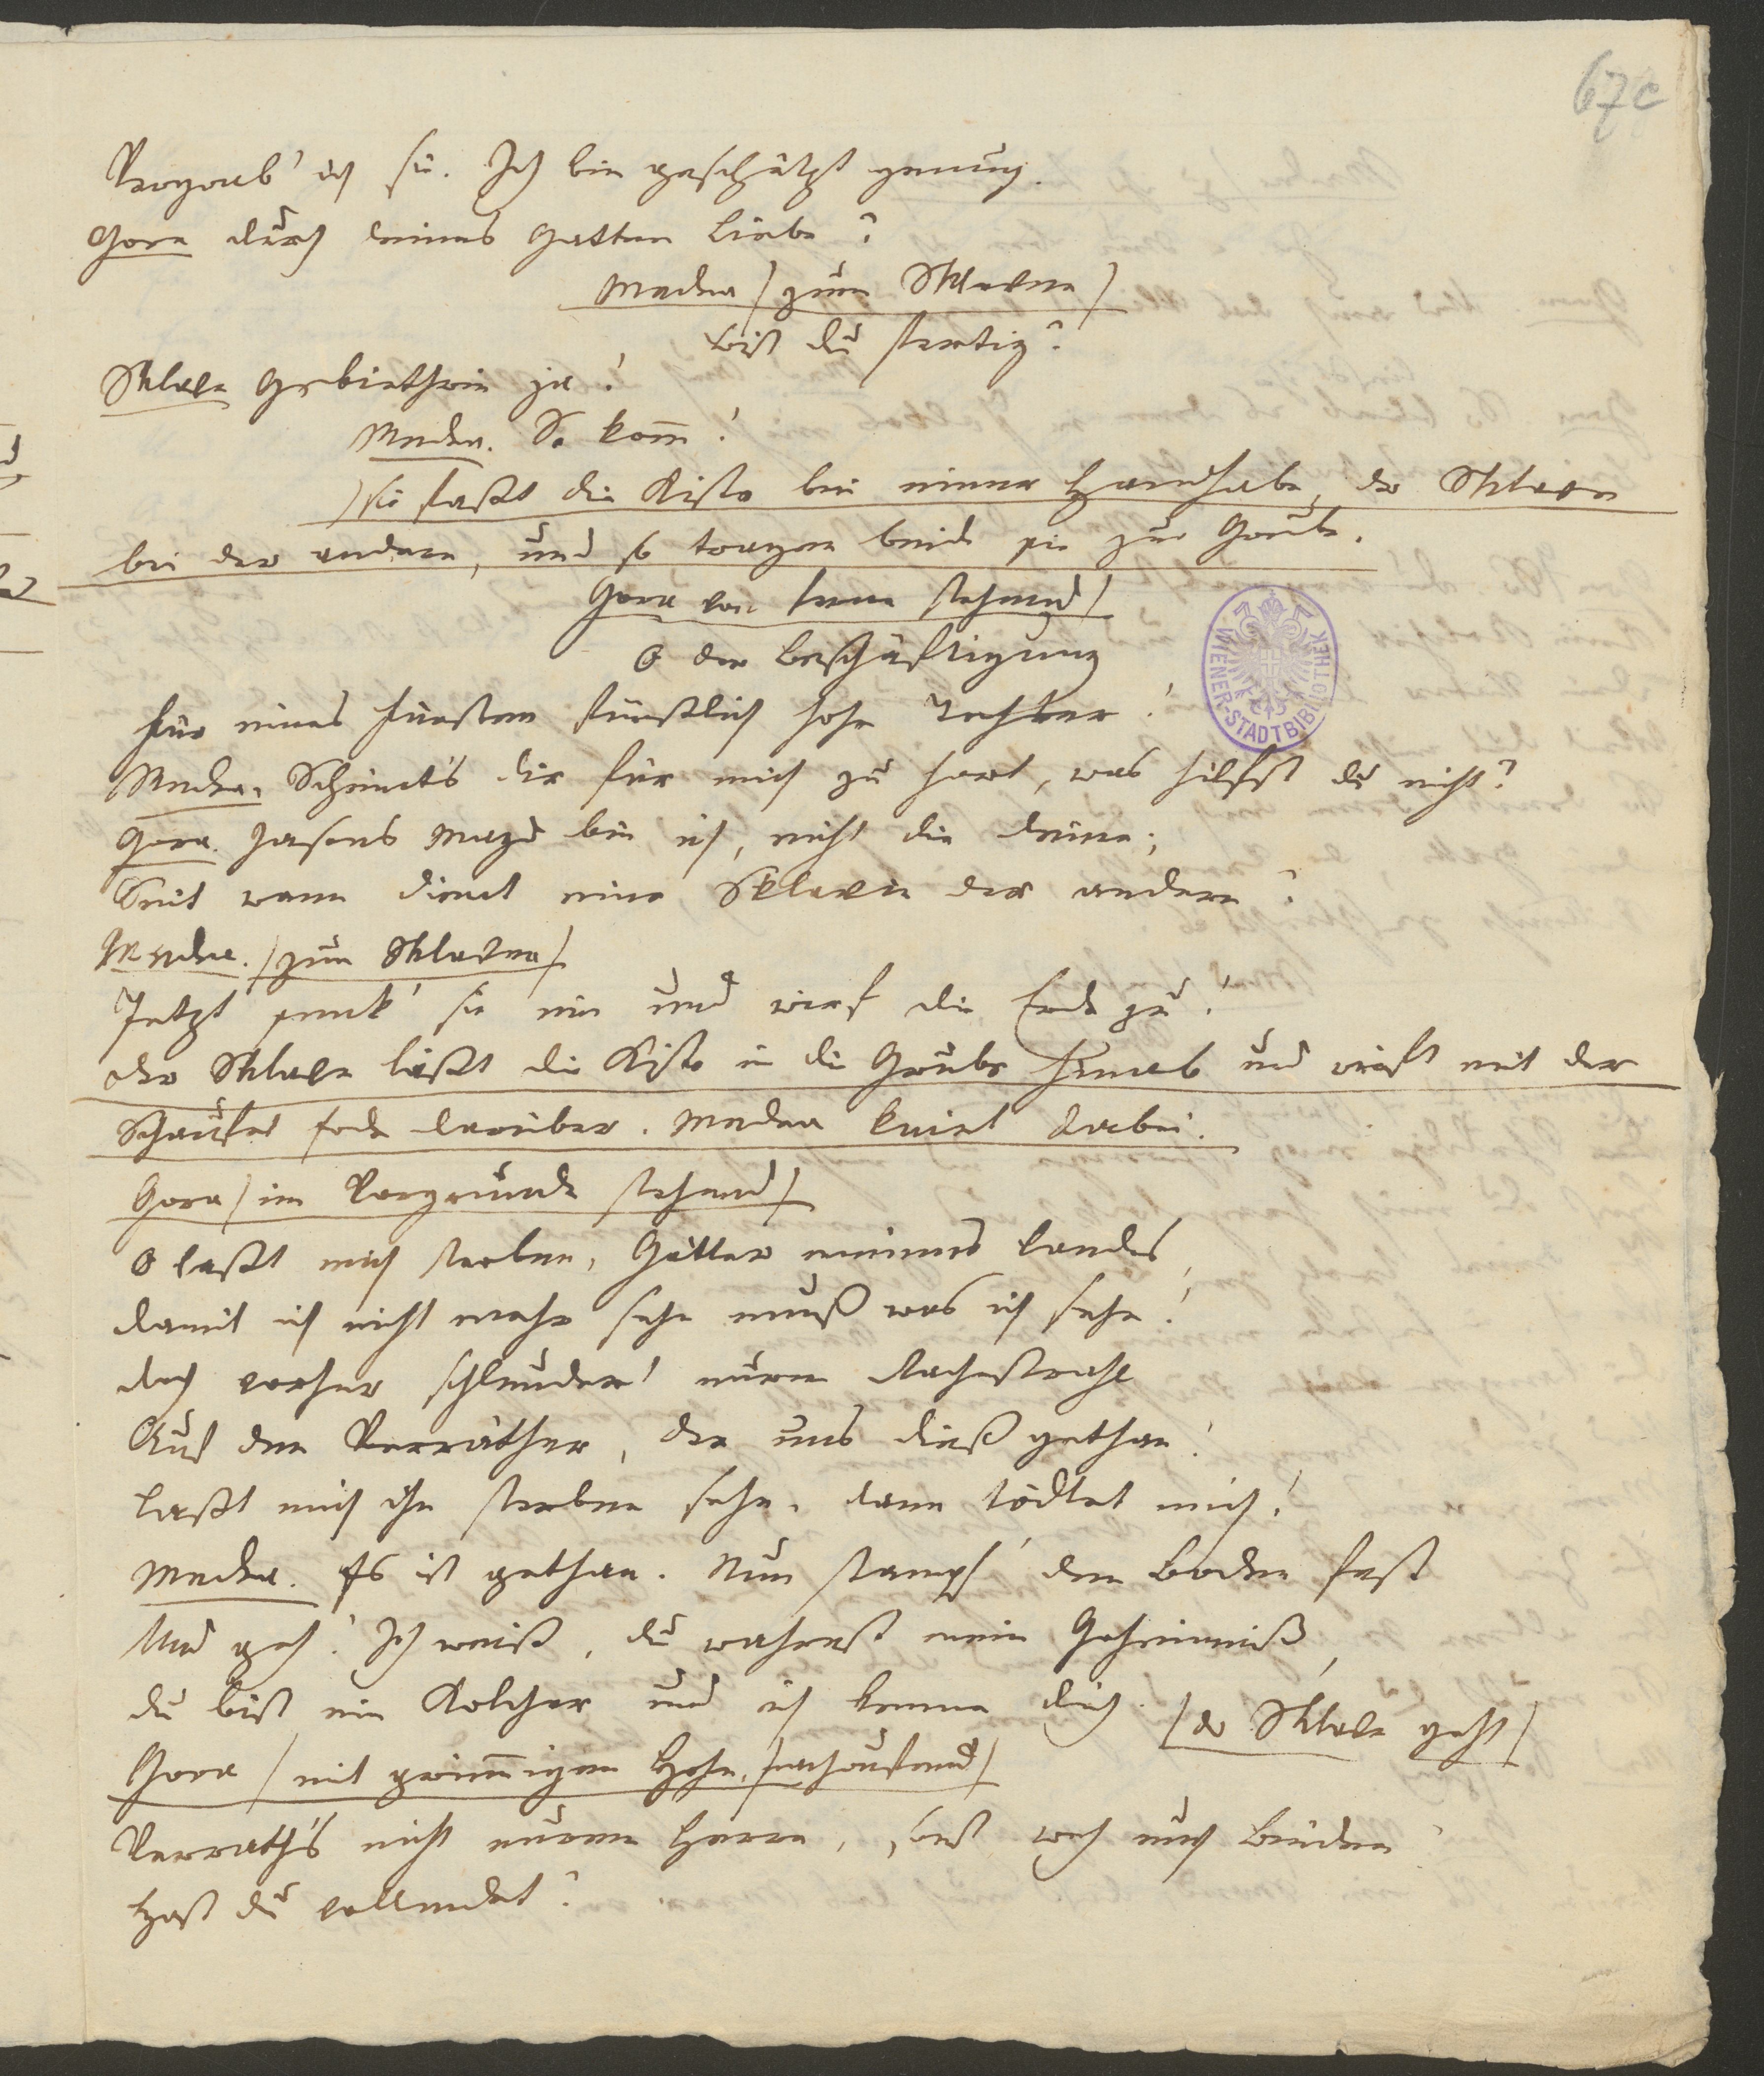 67c
Vergrab' ich sie. Ich bin geschützt genung.
Gora durch deines Gatten Liebe?
Medea /zum Sklaven/
bist du fertig?
Sklave Gebietherin ja!
Medea. So kom̅!
/sie faßt die Kiste bei einer Handhabe, der Sklave
bei der andern, und so tragen beide sie zur Grube.
Gora von ferne stehend/
O der Beschäftigung
für eines Fürsten fürstlich hohe Tochter!
Medea. Scheint's dir für mich zu hart, was hilfst du nicht?
Gora. Jasons Magd bin ich, nicht die deine;
Seit wann dient eine Sklavin der andern?
Medea. /zum Sklaven/
Jetzt senk' sie ein und wirf die Erde zu!
der Sklave läßt die Kiste in die Grube hinab und wirft mit der
Schaufel Erde darüber. Medea kniet dabei.
Gora /im Vorgrunde stehend/
O laßt mich sterben, Götter meines Landes,
damit ich nicht mehr sehn muß was ich sehe!
doch vorher schleudert euren Rachestrahl
Auf den Verräther, der uns dieß gethan!
laßt mich ihn sterben sehn, dann tödtet mich!
Medea. Es ist gethan. Nun stampf' den Boden fest
Und geh! Ich weiß, du wahrest mein Geheimniß,
du bist ein Kolcher und ich kenne dich. /der Sklave geht/
Gora /mit grim̅igem Hohn nachrufend/
Verrath's nicht eurem Herrn, sonst weh euch beiden!
Hast du vollendet?
WIENER-STADTBIBLIOTHEK